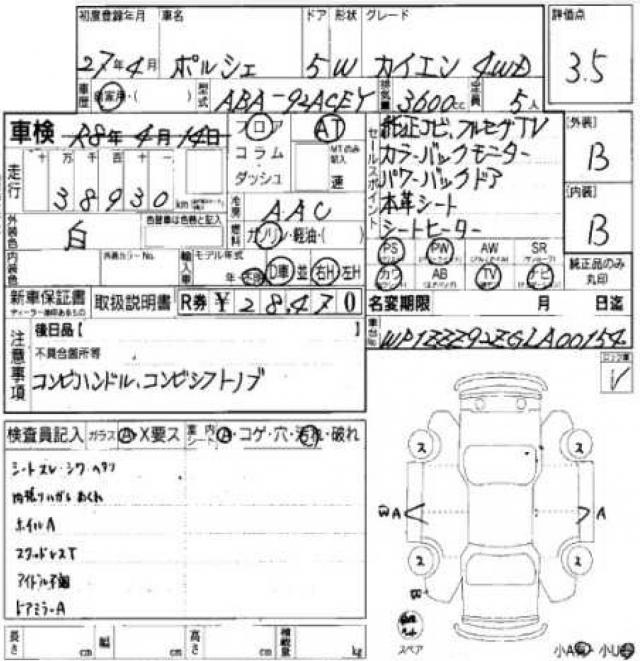 初度登録年月 車名 ドア 形状 グレード 評価点
27年4月 ポルシェ 5 W カイエン 4WD 3.5
車歴 自家用・( ) 型式 ABA-92ACEY 排気量 3600cc 定員 5人
車検 R8年4月14日 フロア AT セールスポイント 純正ナビ、フルセグTV [外装]
コラム MTのみ記入 カラーバックモニター B
走行 十 万 千 百 十 ダッシュ 速 パワーバックドア
38930km 冷房 AAC 本革シート [内装]
外装色 白 色替車は色替と記入 燃料 ガソリン・軽油・( ) シートヒーター B
PS PW AW SR
内装色 外装カラーNo. 輸入車 モデル年式 年 D車 並 右H 左H カワ AB TV ナビ 純正品のみ丸印
新車保証書 取扱説明書 R券 ¥28,470 名変期限 月 日迄
ディーラー捺印あるもの
注意事項 後日品【 車台No. WP1ZZZ92ZGLA00154
不具合箇所等
コンビハンドル、コンビシフトノブ
検査員記入 ガラス A・X要ス 室内シート A・コゲ・穴・汚れ・破れ
シートスレ・シワ・ヘタリ
ホイルA
ドアミラーA
ス ス
A A
ス ス
スペア
長さ cm 幅 cm 高さ cm 積載量 kg
小A 小U